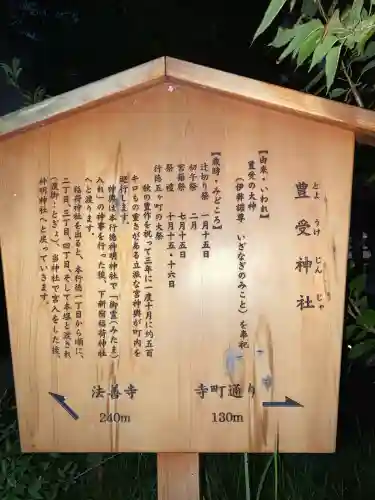 豊受神社
とようけじんじゃ
【由来・いわれ】
豊受の大神
(伊弉諾尊 いざなぎのみこと)を奉祀
【歳時・みどころ】
辻切り祭 一月十五日
初午祭 二月
宮籠祭 七月十五日
祭禮 十月十五・十六日
行徳五ヶ町の大祭
秋の豊作を祝って三年に一度十月に約五百
キロもの重さがある立派な宮神輿が町内を
巡行します。
神輿は本行徳神明神社で「御霊(みたま)
入れ」の神事を行った後、下新宿稲荷神社
へと渡ります。
稲荷神社を出ると、本行徳一丁目から順に
二丁目、三丁目、四丁目、そして本塩と渡され
(渡御・とぎょ)、当神社で宮入をした後、
神明神社へと戻っていきます。
法善寺
240m
寺町通り
130m